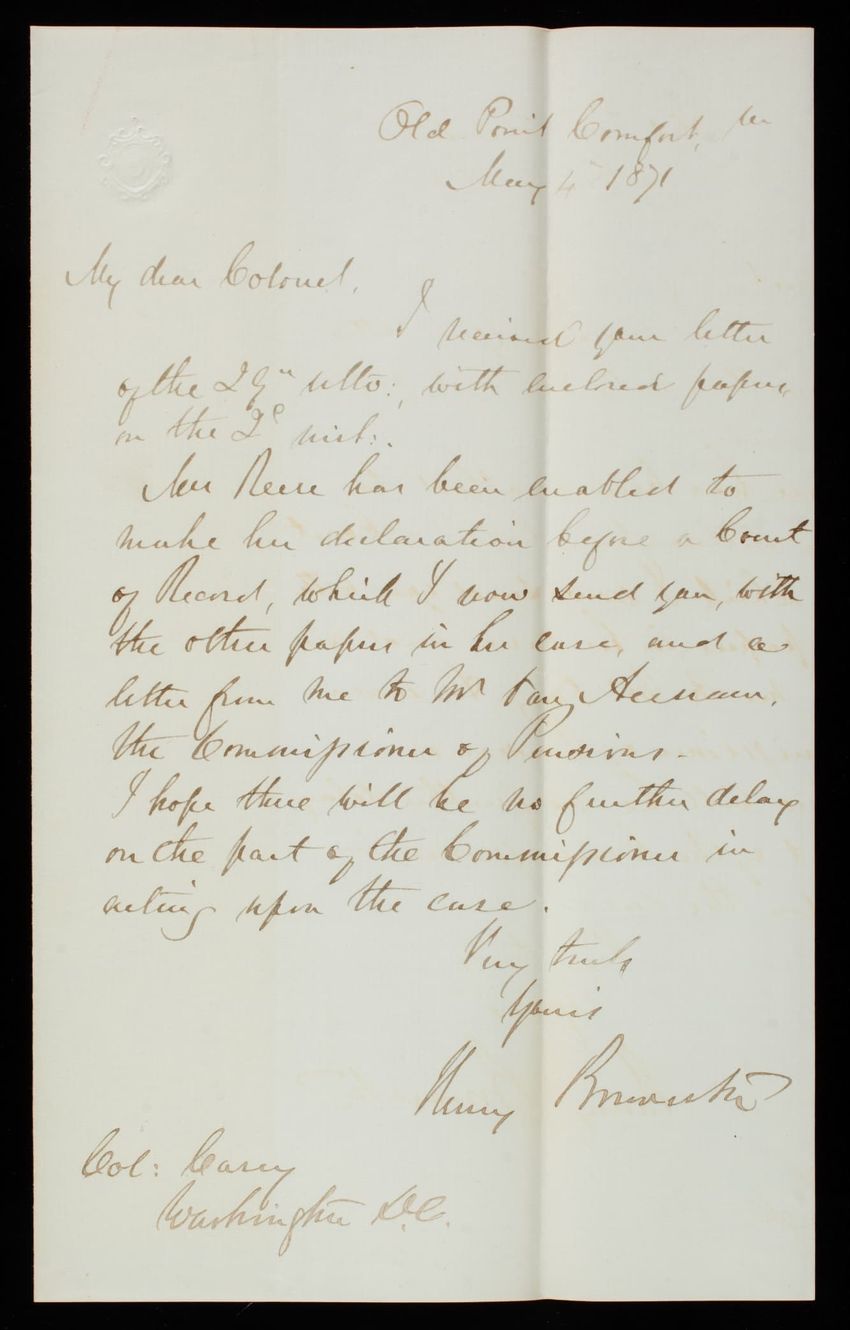 Old Point Comfort, Va
May 4 1871
My dear Colonel,
I received your letter
of the 29" ulto:, with enclosed papers,
on the 2d inst:.
Mrs Reese has been enabled to
make her declaration before a Court
of Record, which I now send you, with
the other papers in her case, and a
letter from me to Mr Van Aernam,
the Commissioner of Pensions -
I hope there will be no further delay
on the part of the Commissioner in
acting upon the case.
Very truly
Yours
Henry
Col: Casey
Washington D.C.